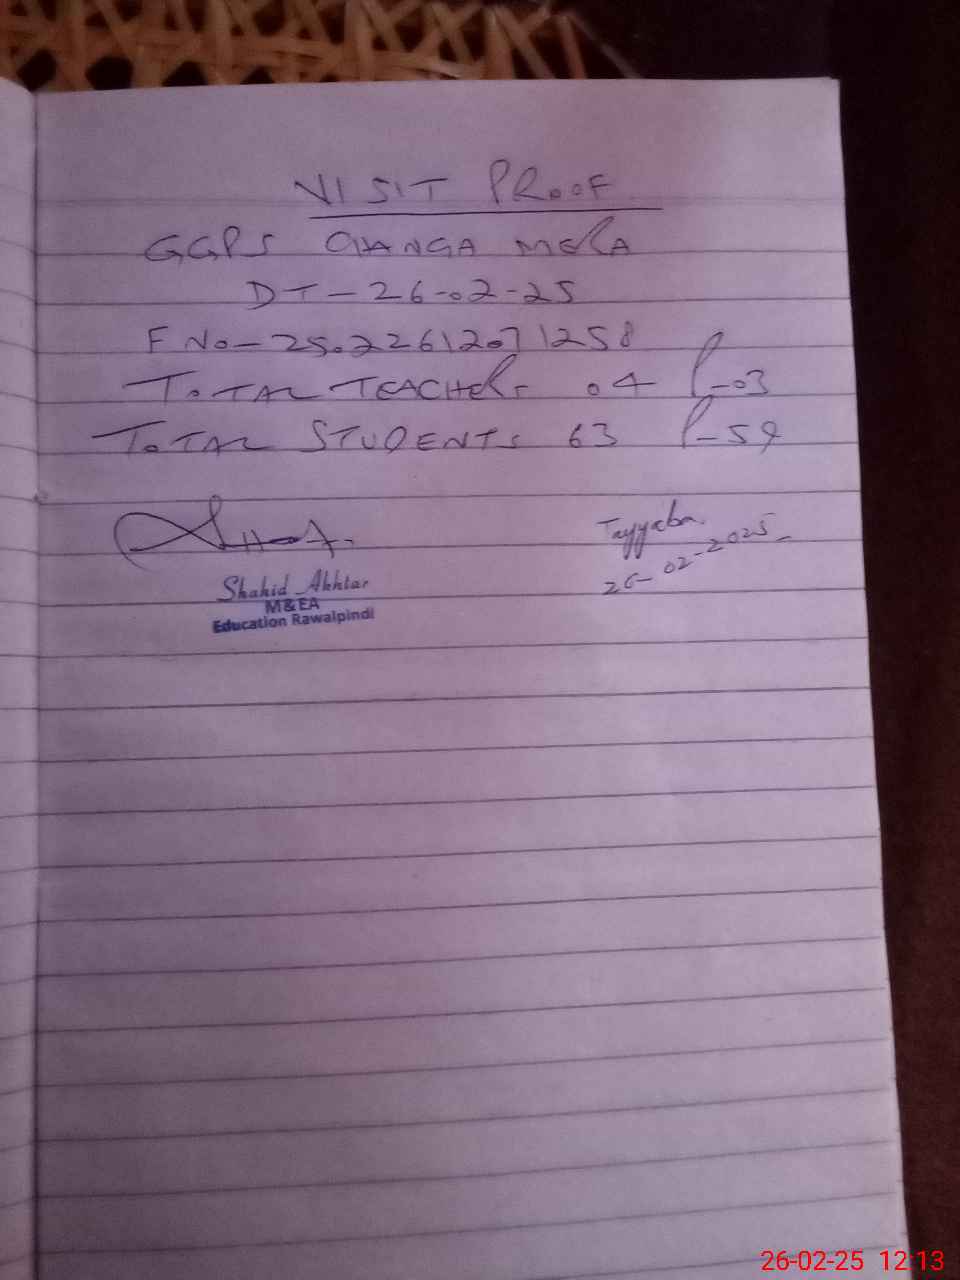 VISIT PROOF
GGPS CHANGA MERA
DT - 26-02-25
F No - 25022612071258
TOTAL TEACHERS 04 P-03
TOTAL STUDENTS 63 P-59
Tayyaba.
26-02-2025
Shahid Akhtar
M&EA
Education Rawalpindi
26-02-25 12:13